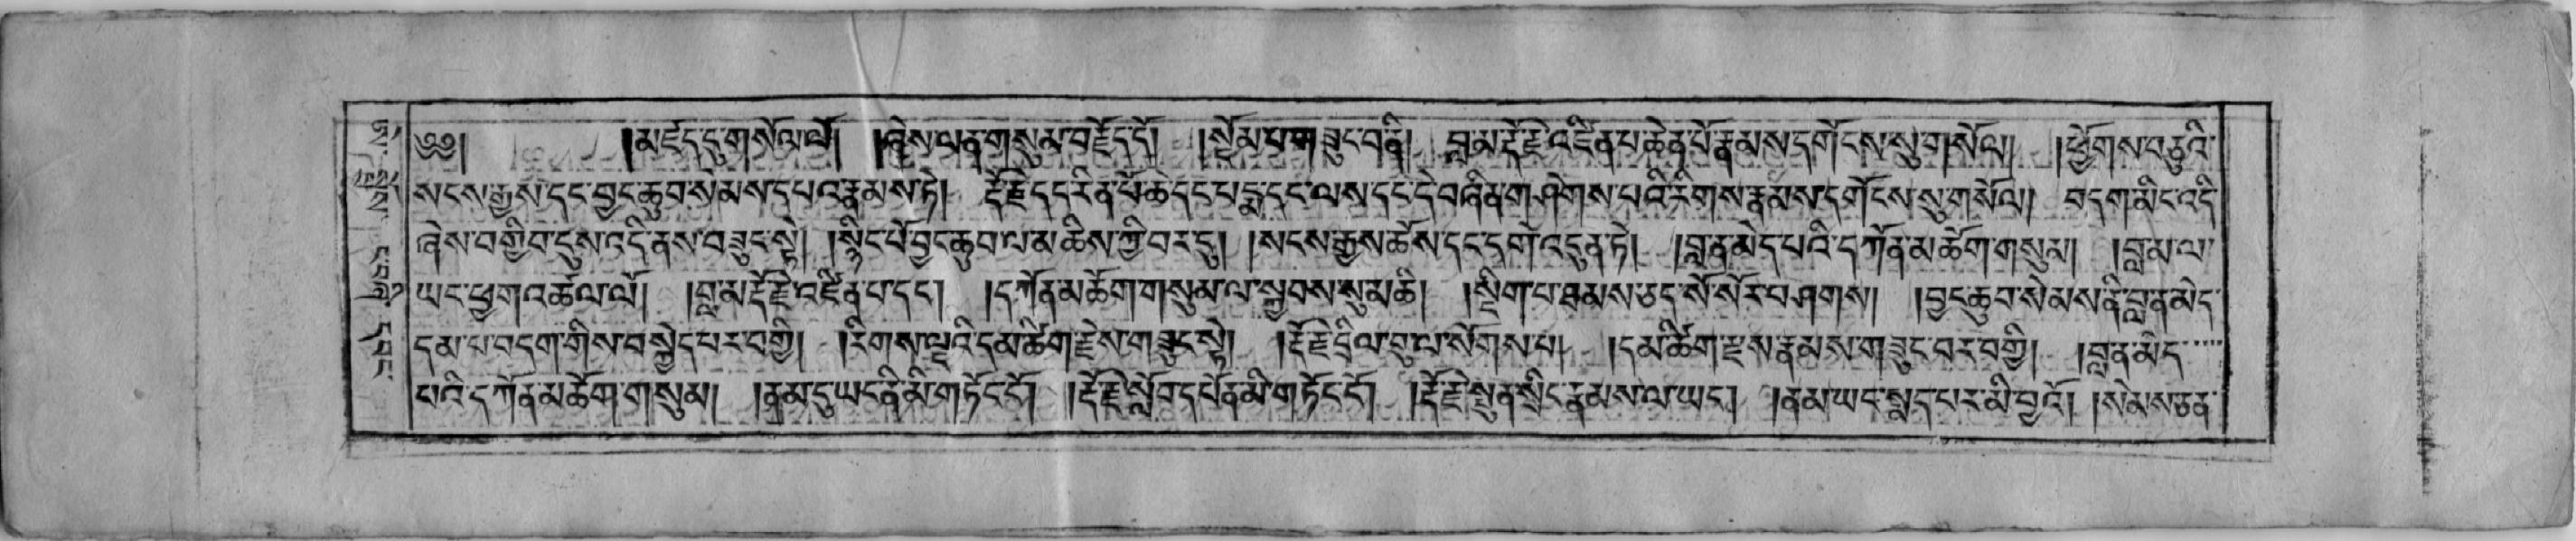 ༄༅། །མ་ཛད་དུ་གསོལ་ལོ། །ཞེས་ལན་གསུམ་བརྗོད་དོ། །སྡོམ་པ་གཟུང་བ་ནི། བླ་མ་རྡོ་རྗེ་འཛིན་པ་ཆེན་པོ་རྣམས་དགོངས་སུ་གསོལ། །ཕྱོགས་བཅུའི་
སངས་རྒྱས་དང་བྱང་ཆུབ་སེམས་དཔའ་རྣམས་ཏེ། རྡོ་རྗེ་དང་རིན་པོ་ཆེ་དང་པདྨ་དང་ལས་དང་དེ་བཞིན་གཤེགས་པའི་རིགས་རྣམས་དགོངས་སུ་གསོལ། བདག་མིང་འདི་
ཞེས་བགྱི་བ་དུས་འདི་ནས་བཟུང་སྟེ། །སྙིང་པོ་བྱང་ཆུབ་ལ་མཆིས་ཀྱི་བར་དུ། །སངས་རྒྱས་ཆོས་དང་དགེ་འདུན་ཏེ། །བླ་ན་མེད་པའི་དཀོན་མཆོག་གསུམ། །བླ་མ་ལ་
ཡང་ཕྱག་འཚལ་ལོ། །བླ་མ་རྡོ་རྗེ་འཛིན་པ་དང། །དཀོན་མཆོག་གསུམ་ལ་སྐྱབས་སུ་མཆི། །སྡིག་པ་ཐམས་ཅད་སོ་སོར་བཤགས། །བྱང་ཆུབ་སེམས་ནི་བླ་ན་མེད་
དམ་པ་བདག་གིས་བསྐྱེད་པར་བགྱི། །རིགས་ལྔའི་དམ་ཚིག་རྗེས་གཟུང་སྟེ། །རྡོ་རྗེ་དྲིལ་བུ་ལ་སོགས་པ། །དམ་ཚིག་རྫས་རྣམས་གཟུང་བར་བགྱི། །བླ་ན་མེད་
པའི་དཀོན་མཆོག་གསུམ། །ནམ་དུ་ཡང་ནི་མི་གཏོང་ངོ། །རྡོ་རྗེ་སློབ་དཔོན་མི་གཏོང་ངོ། །རྡོ་རྗེ་སྤུན་སྲིང་རྣམས་ལ་ཡང། །ནམ་ཡང་སྨད་པར་མི་བྱའོ། །སེམས་ཅན་